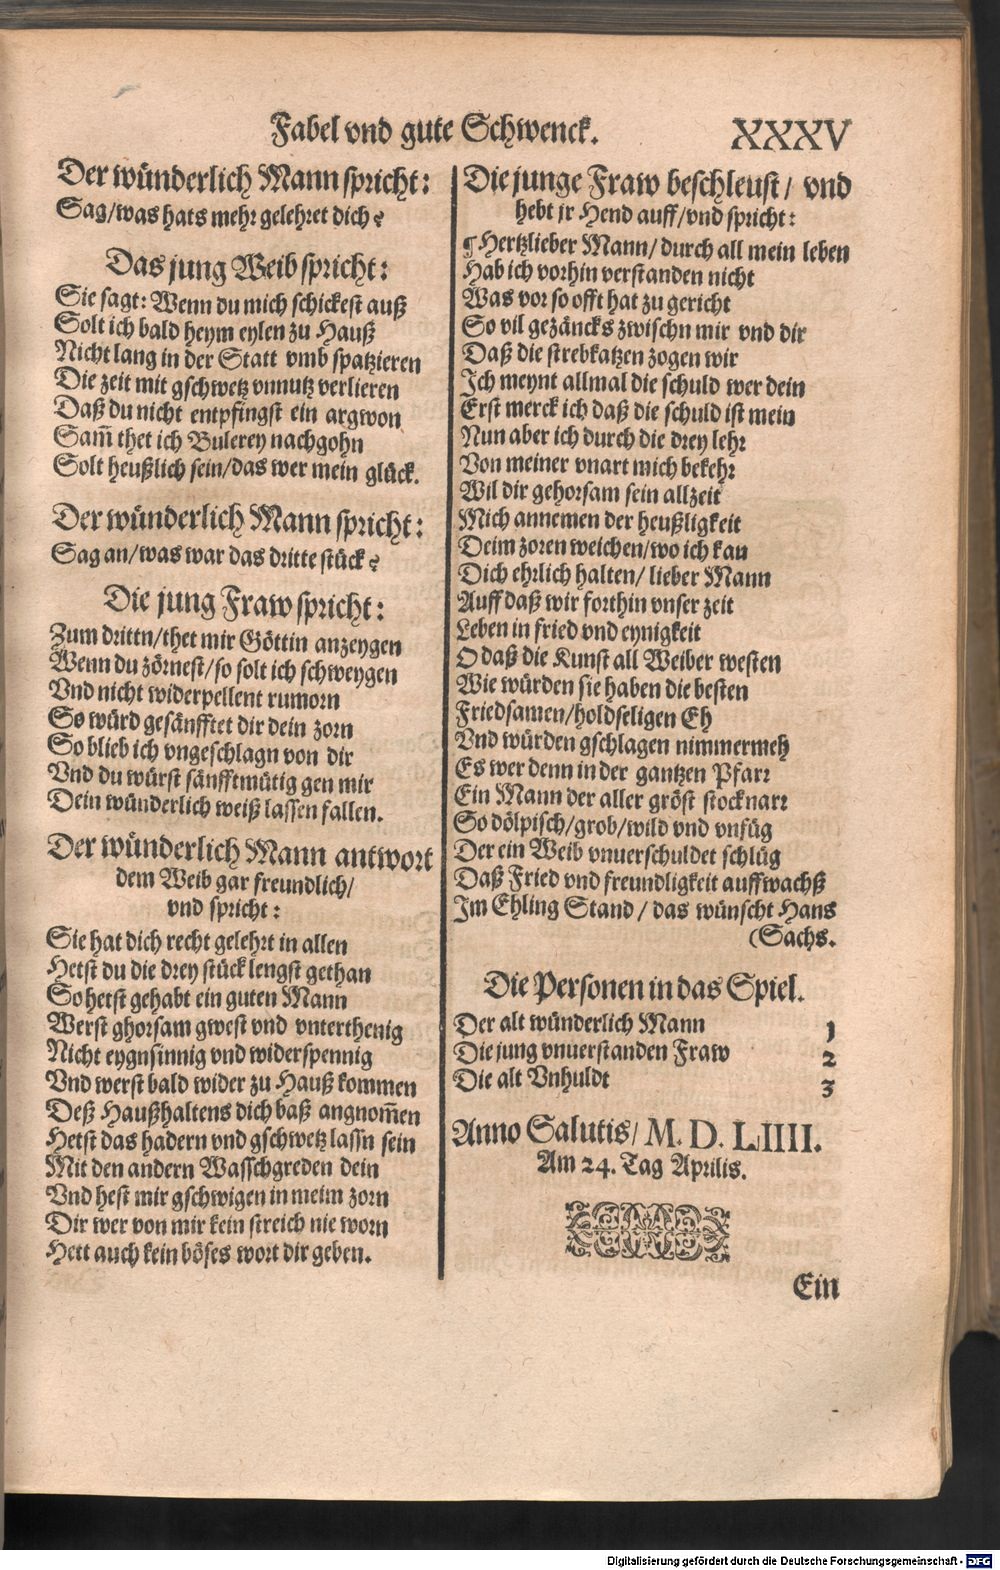 Fabel vnd gute Schwenck. XXXV
Der wünderlich Mann spricht:
Sag/was hats mehr gelehret dich?
Das jung Weib spricht:
Sie sagt: Wenn du mich schickest auß
Solt ich bald heym eylen zu Hauß
Nicht lang in der Statt vmb spatzieren
Die zeit mit gschwetz vnnutz verlieren
Daß du nicht entpfingst ein argwon
Sam̃ thet ich Bulerey nachgohn
Solt heußlich sein/das wer mein glück.
Der wünderlich Mann spricht:
Sag an/was war das dritte stück?
Die jung Fraw spricht:
Zum drittn/thet mir Göttin anzeygen
Wenn du zörnest/so solt ich schweygen
Vnd nicht widerpellent rumorn
So würd gesänfftet dir dein zorn
So blieb ich vngeschlagn von dir
Vnd du würst sänfftmütig gen mir
Dein wünderlich weiß lassen fallen.
Der wünderlich Mann antwort
dem Weib gar freundlich/
vnd spricht:
Sie hat dich recht gelehrt in allen
Hetst du die drey stück lengst gethan
So hetst gehabt ein guten Mann
Werst ghorsam gwest vnd vnterthenig
Nicht eygnsinnig vnd widerspennig
Vnd werst bald wider zu Hauß kommen
Deß Haußhaltens dich baß angnom̃en
Hetst das hadern vnd gschwetz lassn sein
Mit den andern Wasschgreden dein
Vnd hest mir gschwigen in meim zorn
Dir wer von mir kein streich nie worn
Hett auch kein böses wort dir geben.
Die junge Fraw beschleust/ vnd
hebt jr Hend auff/vnd spricht:
¶ Hertzlieber Mann/durch all mein leben
Hab ich vorhin verstanden nicht
Was vor so offt hat zu gericht
So vil gezäncks zwischn mir vnd dir
Daß die strebkatzen zogen wir
Ich meynt allmal die schuld wer dein
Erst merck ich daß die schuld ist mein
Nun aber ich durch die drey lehr
Von meiner vnart mich bekehr
Wil dir gehorsam sein allzeit
Mich annemen der heußligkeit
Deim zoren weichen/wo ich kan
Dich ehrlich halten/ lieber Mann
Auff daß wir forthin vnser zeit
Leben in fried vnd eynigkeit
O daß die Kunst all Weiber westen
Wie würden sie haben die besten
Friedsamen/holdseligen Eh
Vnd würden gschlagen nimmermeh
Es wer denn in der gantzen Pfarr
Ein Mann der aller gröst stocknarr
So dölpisch/grob/wild vnd vnfüg
Der ein Weib vnuerschuldet schlüg
Daß Fried vnd freundligkeit auffwachß
Im Ehling Stand/ das wünscht Hans
(Sachs.
Die Personen in das Spiel.
Der alt wünderlich Mann 1
Die jung vnuerstanden Fraw 2
Die alt Vnhuldt 3
Anno Salutis/ M. D. LIIII.
Am 24. Tag Aprilis.
Ein
Digitalisierung gefördert durch die Deutsche Forschungsgemeinschaft - DFG